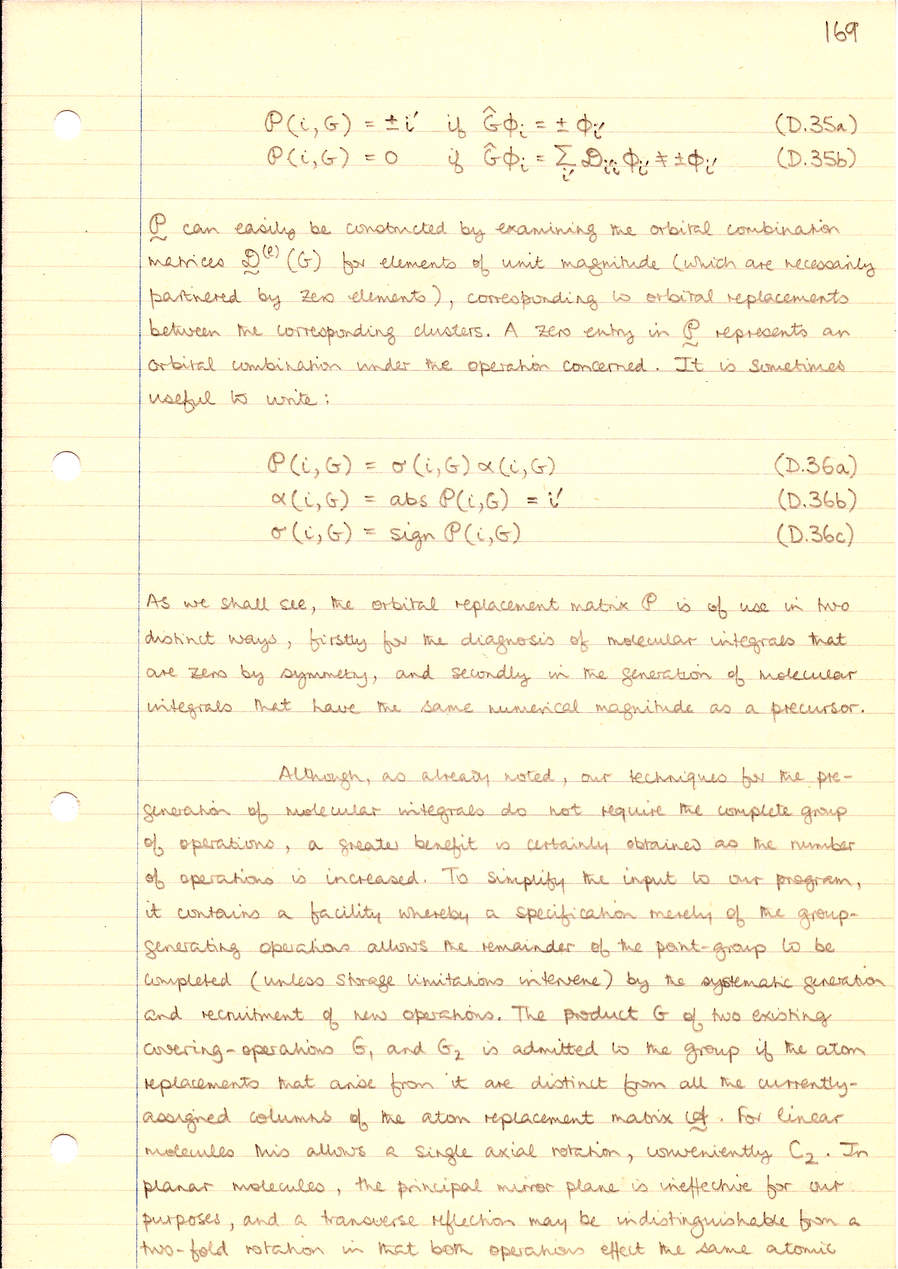 169
P(i,G) = ±i′ if Ĝϕᵢ = ± ϕᵢ′ (D.35a)
P(i,G) = 0 if Ĝϕᵢ = Σᵢ′ 𝒟ᵢ′ᵢ ϕᵢ′ ≠ ±ϕᵢ′ (D.35b)
P can easily be constructed by examining the orbital combination
matrices 𝒟⁽ˡ⁾(G) for elements of unit magnitude (which are necessarily
partnered by zero elements), corresponding to orbital replacements
between the corresponding clusters. A zero entry in P represents an
orbital combination under the operation concerned. It is sometimes
useful to write:
P(i,G) = σ(i,G) α(i,G) (D.36a)
α(i,G) = abs P(i,G) = i′ (D.36b)
σ(i,G) = sign P(i,G) (D.36c)
As we shall see, the orbital replacement matrix P is of use in two
distinct ways, firstly for the diagnosis of molecular integrals that
are zero by symmetry, and secondly in the generation of molecular
integrals that have the same numerical magnitude as a precursor.
Although, as already noted, our techniques for the pre-
generation of molecular integrals do not require the complete group
of operations, a greater benefit is certainly obtained as the number
of operations is increased. To simplify the input to our program,
it contains a facility whereby a specification merely of the group-
generating operations allows the remainder of the point-group to be
completed (unless storage limitations intervene) by the systematic generation
and recruitment of new operations. The product G of two existing
covering-operations G₁ and G₂ is admitted to the group if the atom
replacements that arise from it are distinct from all the currently-
assigned columns of the atom replacement matrix 𝒜. For linear
molecules this allows a single axial rotation, conveniently C₂. In
planar molecules, the principal mirror plane is ineffective for our
purposes, and a transverse reflection may be indistinguishable from a
two-fold rotation in that both operations effect the same atomic